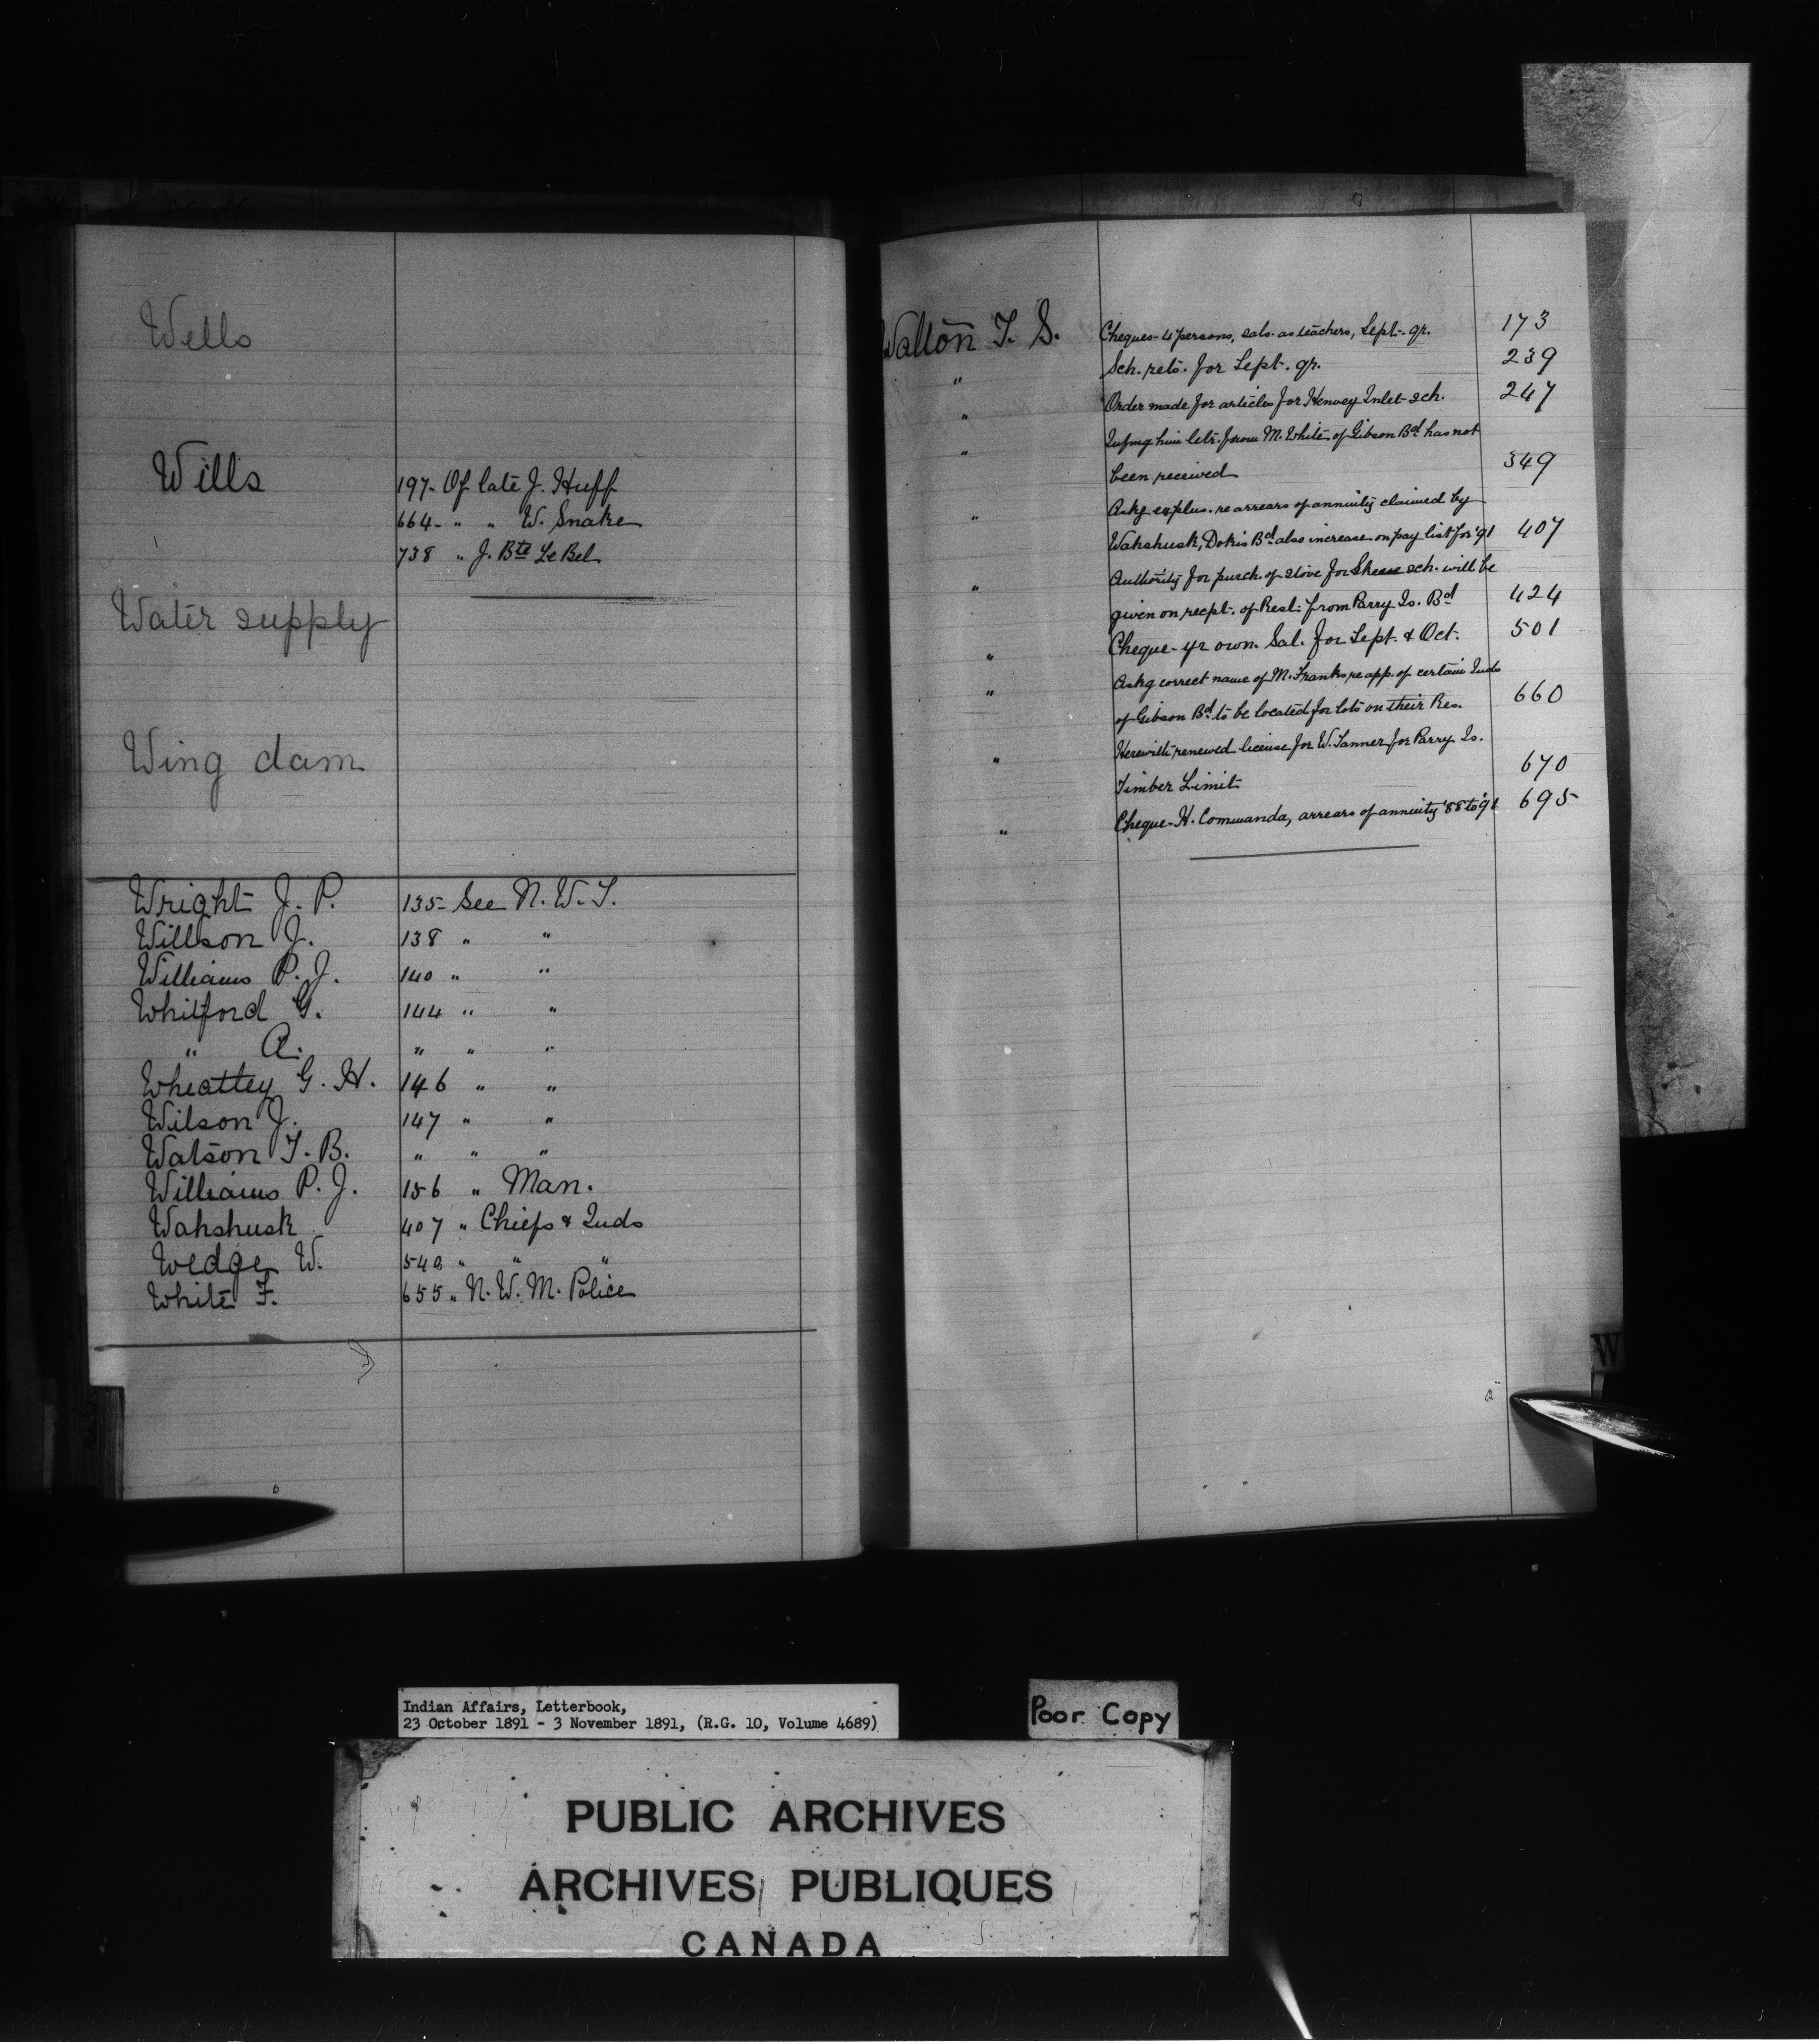 Wells
Wills
197- Of late J. Huff
664- " " W. Snake
738 " J. Bte Le Bel
Water supply
Wing dam
Wright J. P. 135- See N. W. T.
Willson J. 138 " "
Williams P. J. 140 " "
Whitford G. 144 " "
" A. " " "
Wheatley G. H. 146 " "
Wilson J. 147 " "
Watson T. B. " " "
Williams P. J. 156 " Man.
Wahshusk 407 " Chiefs & Inds
Wedge W. 540 " " "
White F. 655 " N. W. M. Police
Walton T. S. Cheques- 4 persons, sals. as teachers, Sept. qr. 173
" Sch. rets. for Sept. qr. 239
" Order made for articles for Henvey Inlet sch. 247
" Infmg him letr. from M. White of Gibson Bd has not
been received 349
" Askg explns. re arrears of annuity claimed by
Wahshusk, Dokis Bd also increase on pay list for '91 407
" Authority for purch. of stove for Skene sch. will be
given on recpt. of Resl. from Parry Is. Bd 424
" Cheque- yr own Sal. for Sept. & Oct. 501
" Askg correct name of M. Franks re app. of certain Inds
of Gibson Bd to be located for lots on their Res. 660
" Herewith renewed license for W. Tanner for Parry Is.
Timber Limit 670
" Cheque- H. Commanda, arrears of annuity '88 to '91 695
W
Indian Affairs, Letterbook,
23 October 1891 - 3 November 1891, (R.G. 10, Volume 4689)
Poor Copy
PUBLIC ARCHIVES
ARCHIVES PUBLIQUES
CANADA